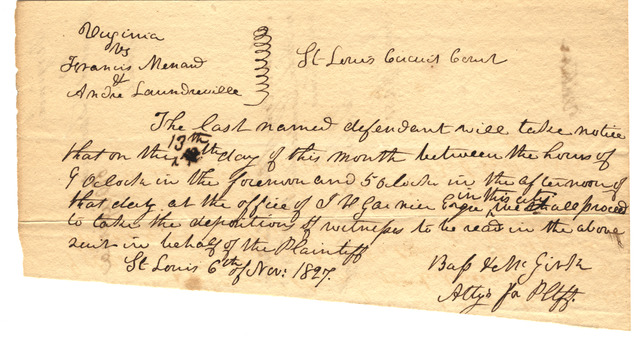 Virginia
vs
Francis Menard
&
Andre Laundreville
St Louis Circuit Court
The last named defendant will take notice
that on the 13th day of this month between the hours of
9 Oclock in the forenoon and 5 oclock in the afternoon of
in this city
that day at the office of J H Garnier Esqre we shall proceed
to take the depositions of witnesses to be read in the above
suit in behalf of the Plaintiff
St Louis 6th of Nov: 1827.
Bass & McGirk
Attys for Pltff.